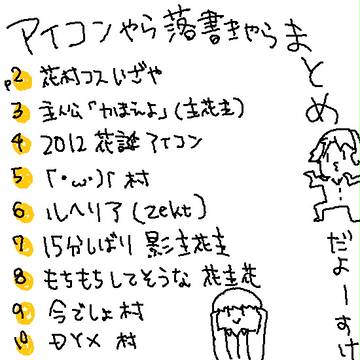 アイコンやら落書きやらまとめだよーすけ
p2 花村コスいざや
3 主人公「かまえよ」(主花主)
4 2012 花誕アイコン
5 「・ω・)「 村
6 ルヘリア(Zekt)
7 15分しばり 影主花主
8 もちもちしてそうな 花主花
9 今でしょ村
10 DYX 村